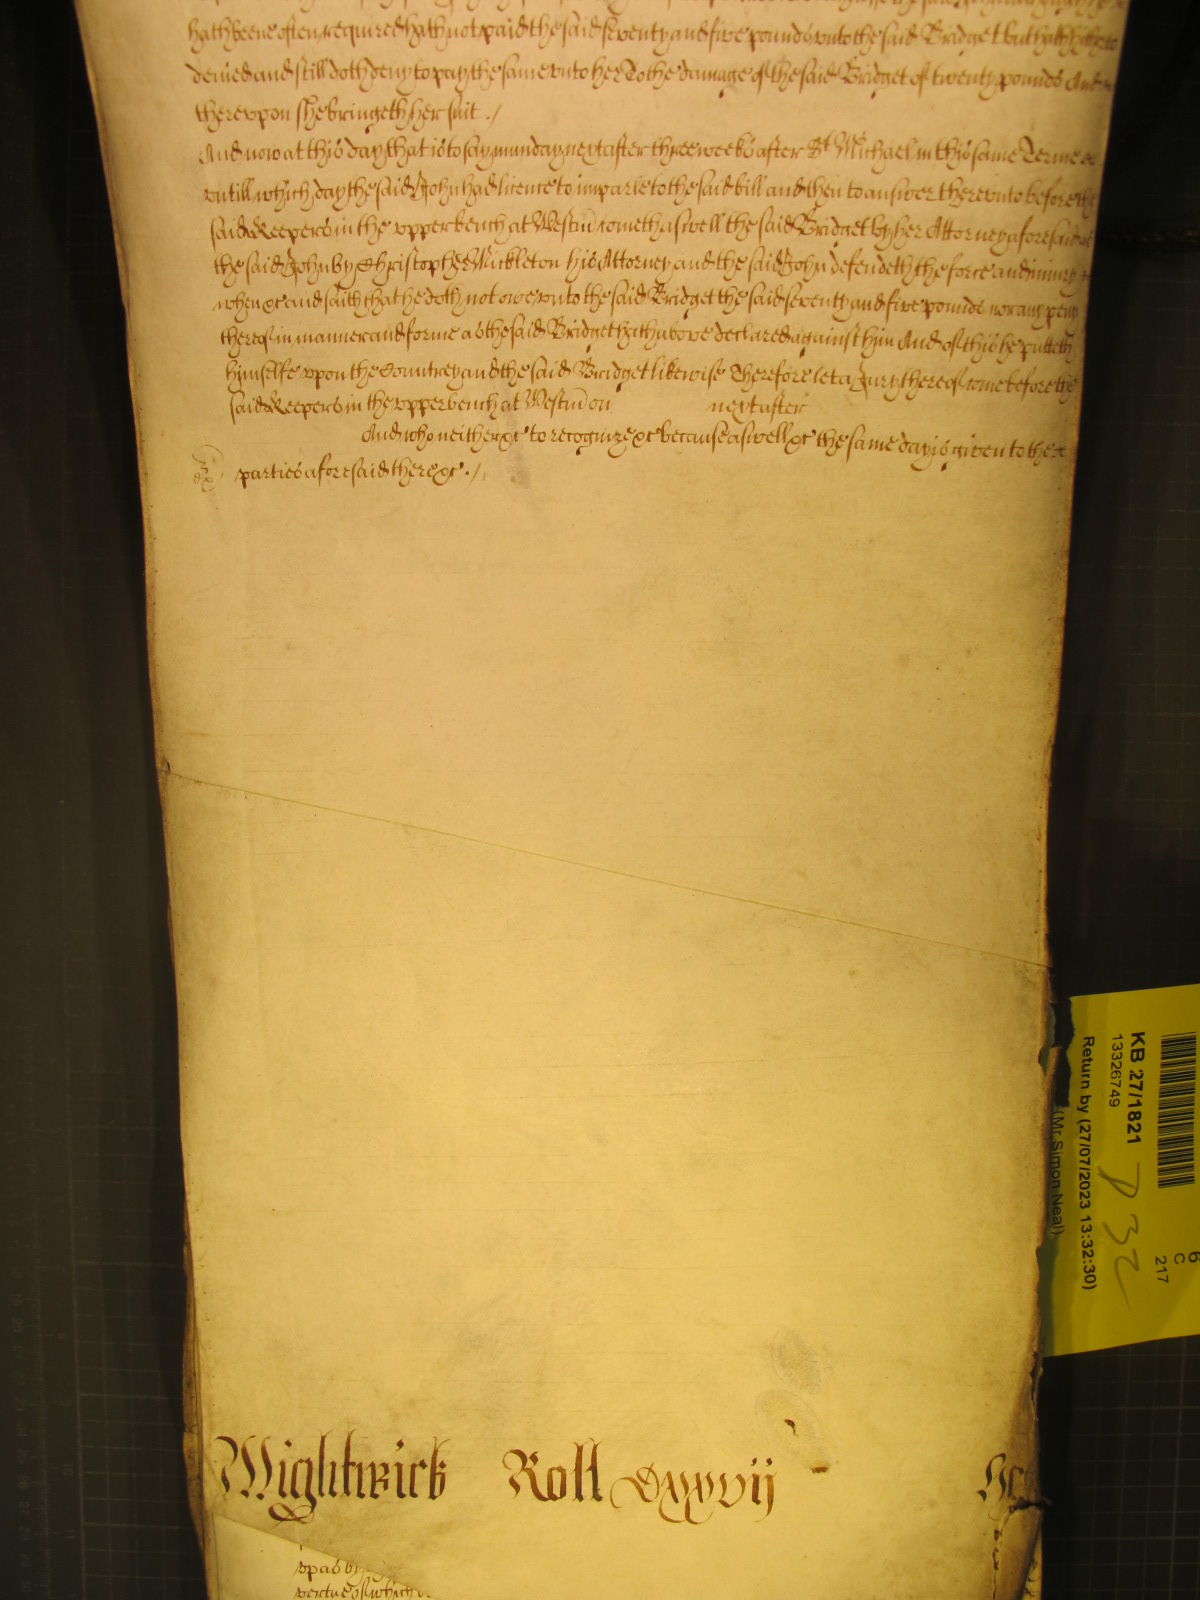 hath beene often required hath not paid the said seventy and five pounds unto the said Bridget but hath hitherto
denied and still doth deny to pay the same unto her To the damage of the said Bridget of twenty pounds And
thereupon she bringeth her suit ./
And now at this day that is to say munday next after three weeks after St Michael in this same Terme
untill which day the said John had licence to imparle to the said bill and then to answer thereunto before the
said Keepers in the upper bench at Westm cometh aswell the said Bridget by her Attorney aforesaid as
the said John by Christopher Mickleton his Attorney and the said John defendeth the force and iniury
when &c and saith that he doth not owe unto the said Bridget the said seventy and five pounds nor any peny
thereof in manner and forme as the said Bridget hath above declared against him And of this he putteth
himselfe upon the Countrey and the said Bridget likewise Therefore let a Jury thereof come before the
said Keepers in the upper bench at Westm on next after
And who neither &c to recognize &c because aswell &c the same day is given to the
parties aforesaid there &c ./
Wightwick Roll Dxxvij
upas by
vertue of which
KB 27/1821
13326749
Return by (27/07/2023 13:32:30)
(Mr Simon Neal)
6
C
217
P 32